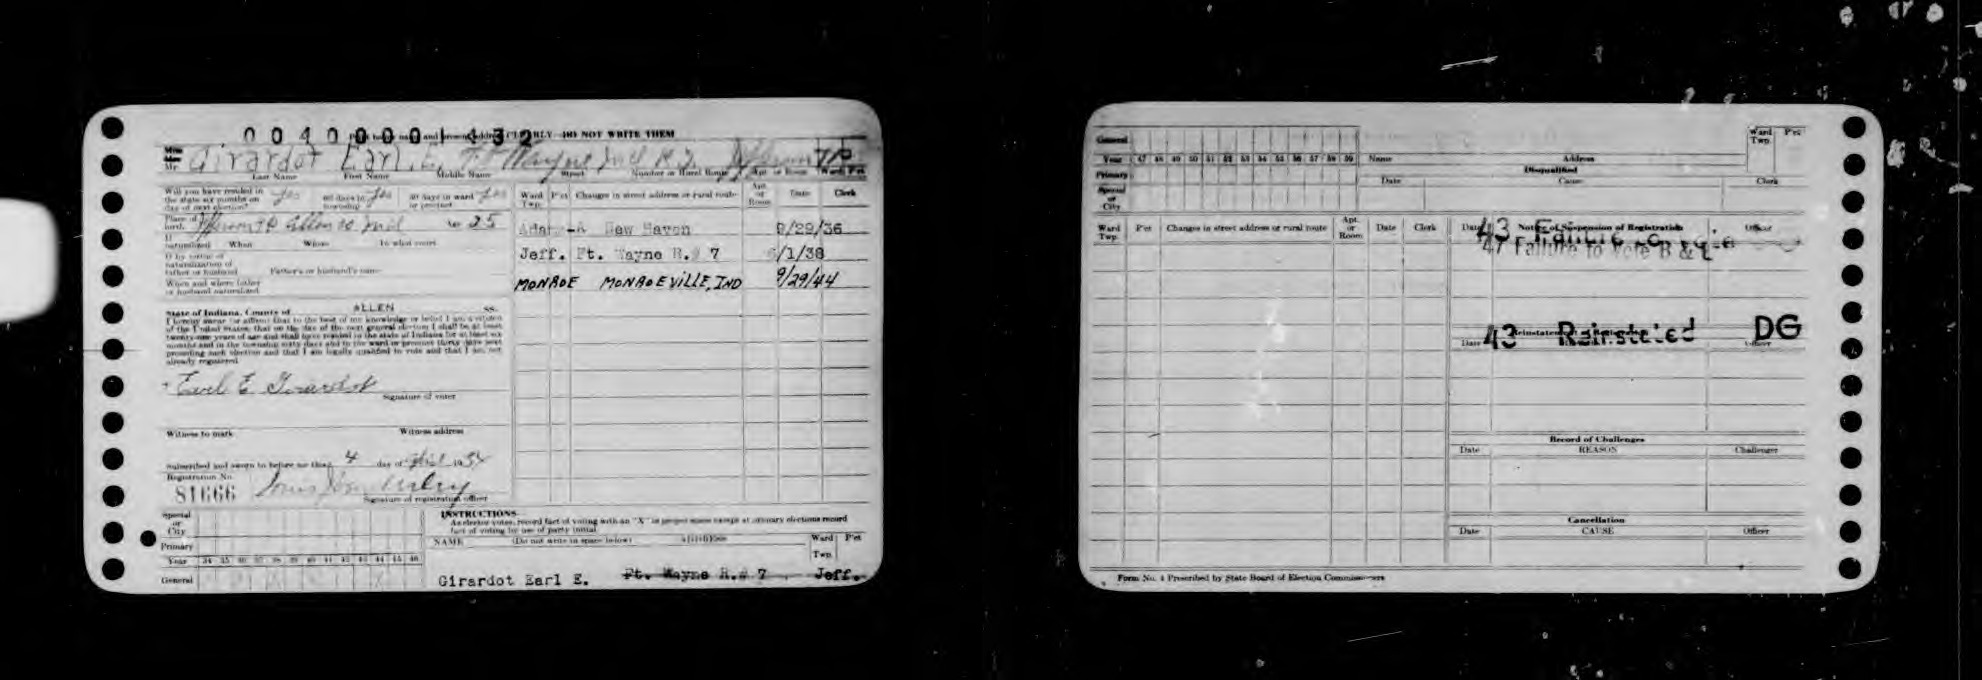 0040001432
CLEARLY—DO NOT WRITE THEM
Miss
Mrs.
Mr. Girardot Earl E. Ft Wayne Ind R 7 Jefferson TP
Last Name First Name Middle Name Street Number or Rural Route Apt. or Room Ward P'ct
Will you have resided in the state six months on day of next election? yes 60 days in township yes 30 days in ward or precinct yes
Place of birth Jefferson TP Allen Co Ind Age 25
If naturalized When Where In what court
If by virtue of naturalization of father or husband Father's or husband's name
When and where father or husband naturalized
State of Indiana, County of ALLEN ss.
I hereby swear (or affirm) that to the best of my knowledge or belief I am a citizen
of the United States; that on the day of the next general election I shall be at least
twenty-one years of age and shall have resided in the state of Indiana for at least six
months and in the township sixty days and in the ward or precinct thirty days next
preceding such election and that I am legally qualified to vote and that I am not
already registered
Earl E. Girardot
Signature of voter
Witness to mark Witness address
Subscribed and sworn to before me this 4 day of April 1934
Registration No.
81666
Signature of registration officer
Ward Twp. P'ct Changes in street address or rural route Apt. or Room Date Clerk
Adams-A New Haven 9/29/36
Jeff. Ft. Wayne R.# 7 /1/38
MONROE MONROEVILLE, IND 9/29/44
Special or City
Primary
Year 34 35 36 37 38 39 40 41 42 43 44 45 46
General
INSTRUCTIONS
As elector votes, record fact of voting with an "X" in proper space except at primary elections record
fact of voting by use of party initial
NAME (Do not write in space below) ADDRESS Ward Twp. P'ct
Girardot Earl E. Ft. Wayne R.# 7 Jeff.
General
Year 47 48 49 50 51 52 53 54 55 56 57 58 59
Primary
Special or City
Name Address Ward Twp. P'ct
Disqualified
Date Cause Clerk
Ward Twp. P'ct Changes in street address or rural route Apt. or Room Date Clerk
Date Notice of Suspension of Registration Officer
43 Failure to
47 Failure to Vote B & C
Reinstatement of Registration
Date Officer
43 Reinstated DG
Record of Challenges
Date REASON Challenger
Cancellation
Date CAUSE Officer
Form No. 4 Prescribed by State Board of Election Commissioners